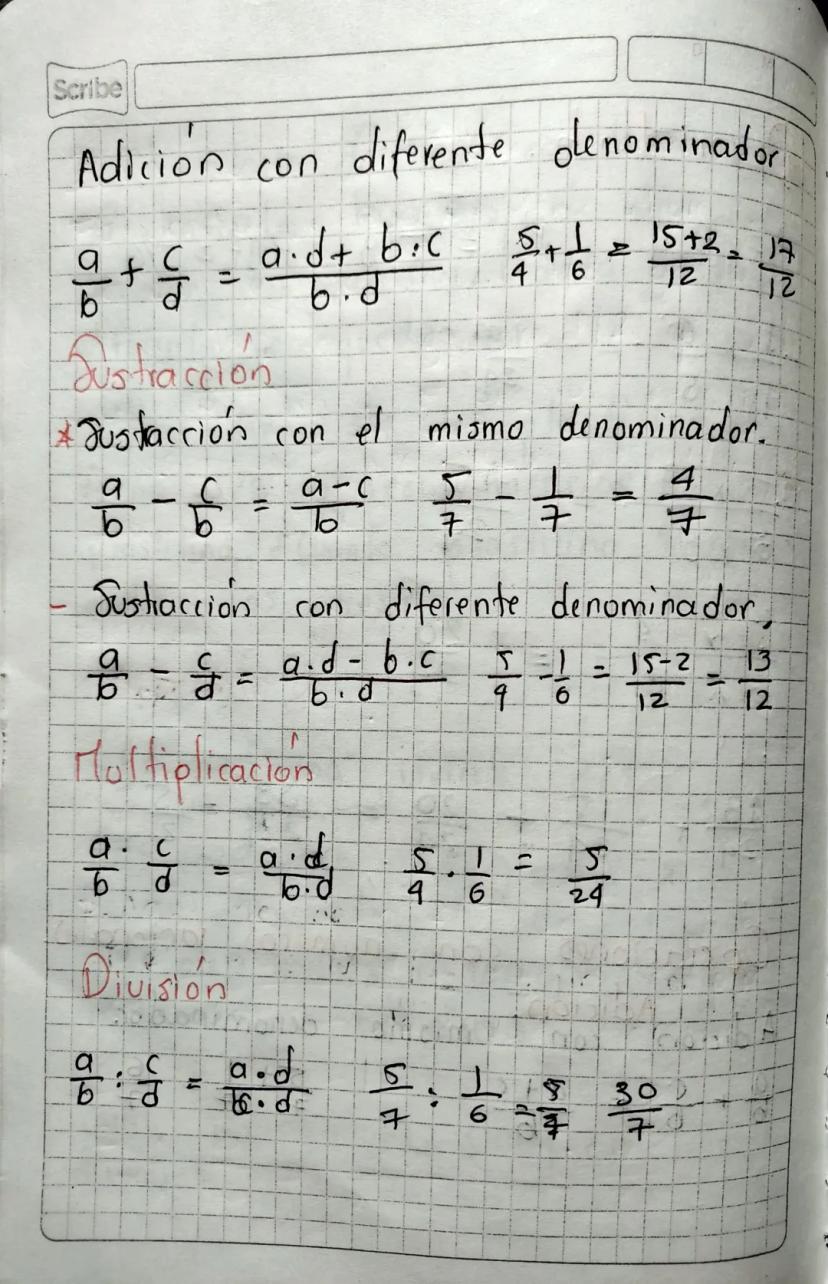 Scribe
Adición con diferente denominador
a/b + c/d = a·d + b·c / b·d    5/4 + 1/6 = 15+2/12 = 17/12
Sustracción
* Sustacción con el mismo denominador.
a/b - c/b = a-c/b    5/7 - 1/7 = 4/7
- Sustracción con diferente denominador.
a/b - c/d = a.d - b.c / b.d    5/4 - 1/6 = 15-2/12 = 13/12
Multiplicación
a/b · c/d = a·d/b·d    5/4 · 1/6 = 5/24
División
a/b : c/d = a·d / ·d    5/7 : 1/6 = 30/7